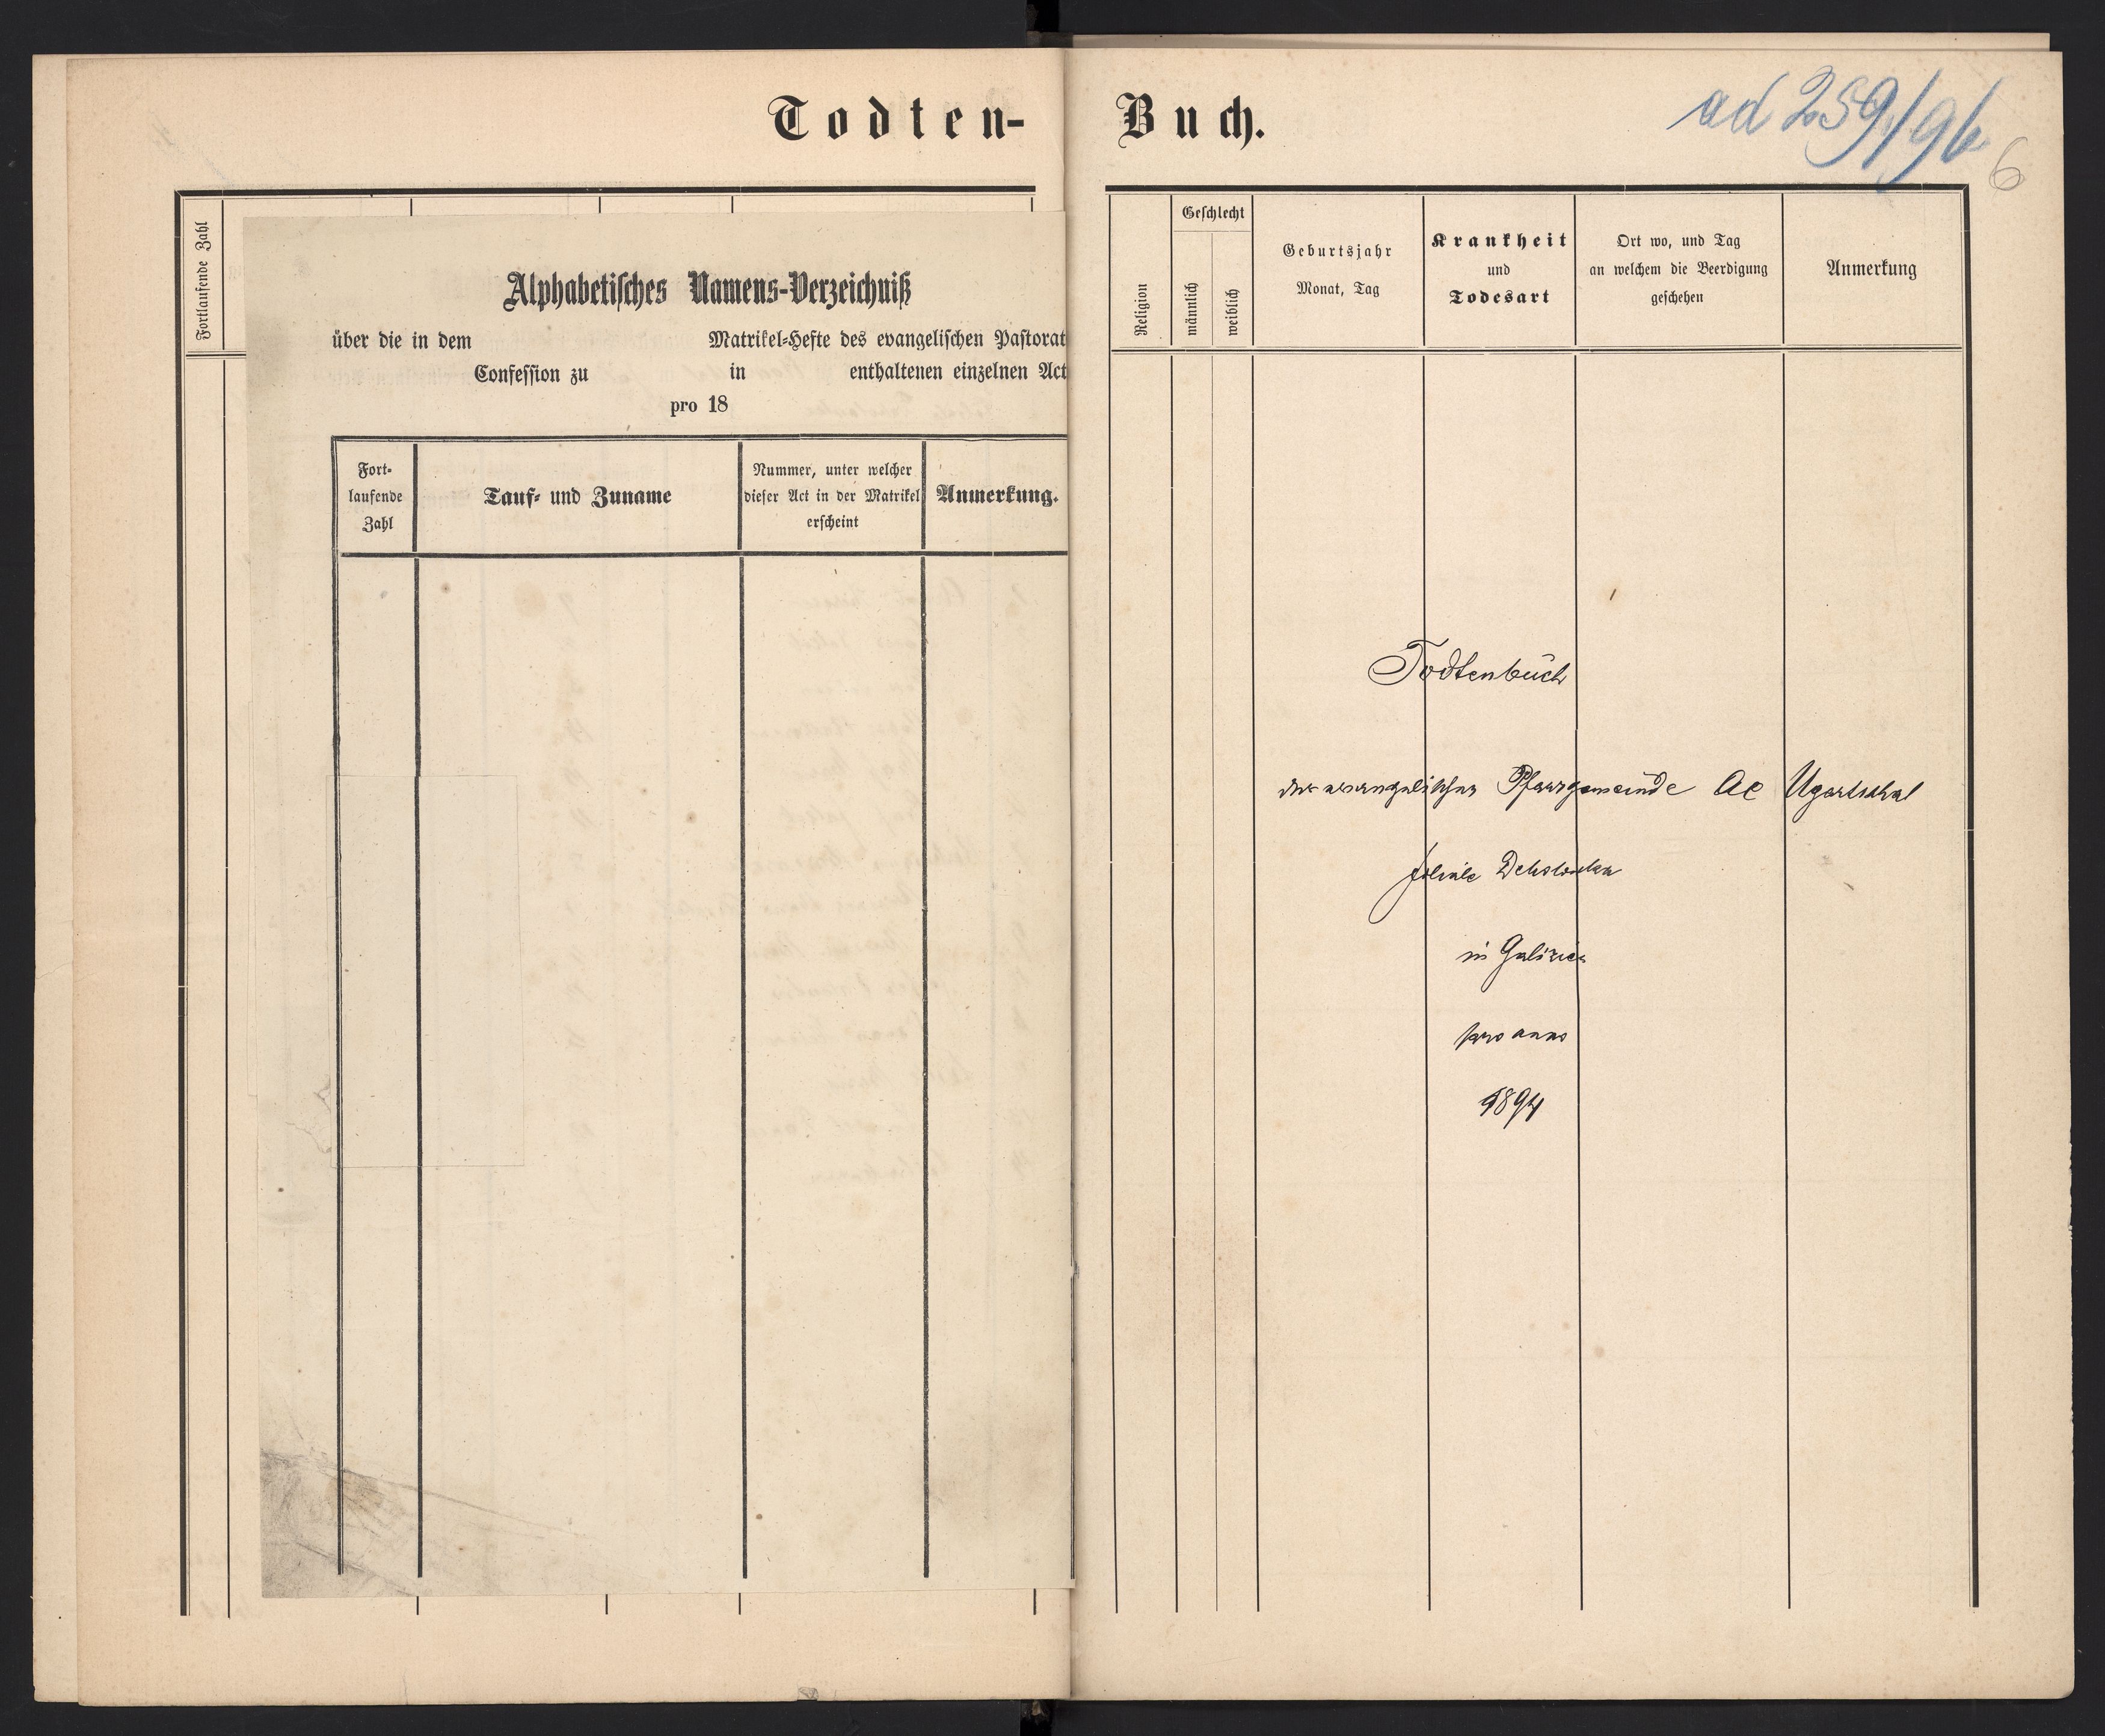 Todten-
Fortlaufende Zahl
Alphabetisches Namens-Verzeichniß
über die in dem Matrikel-Hefte des evangelischen Pastorat
Confession zu in enthaltenen einzelnen Act
pro 18
Fort-
laufende
Zahl
Tauf- und Zuname
Nummer, unter welcher
dieser Act in der Matrikel
erscheint
Anmerkung.
Buch.
ad 259/96
6
Religion
Geschlecht
männlich
weiblich
Geburtsjahr
Monat, Tag
Krankheit
und
Todesart
Ort wo, und Tag
an welchem die Beerdigung
geschehen
Anmerkung
Todtenbuch
der evangelischen Pfarrgemeinde AC Ugartsthal
filiale
in Galizien
pro anno
1894